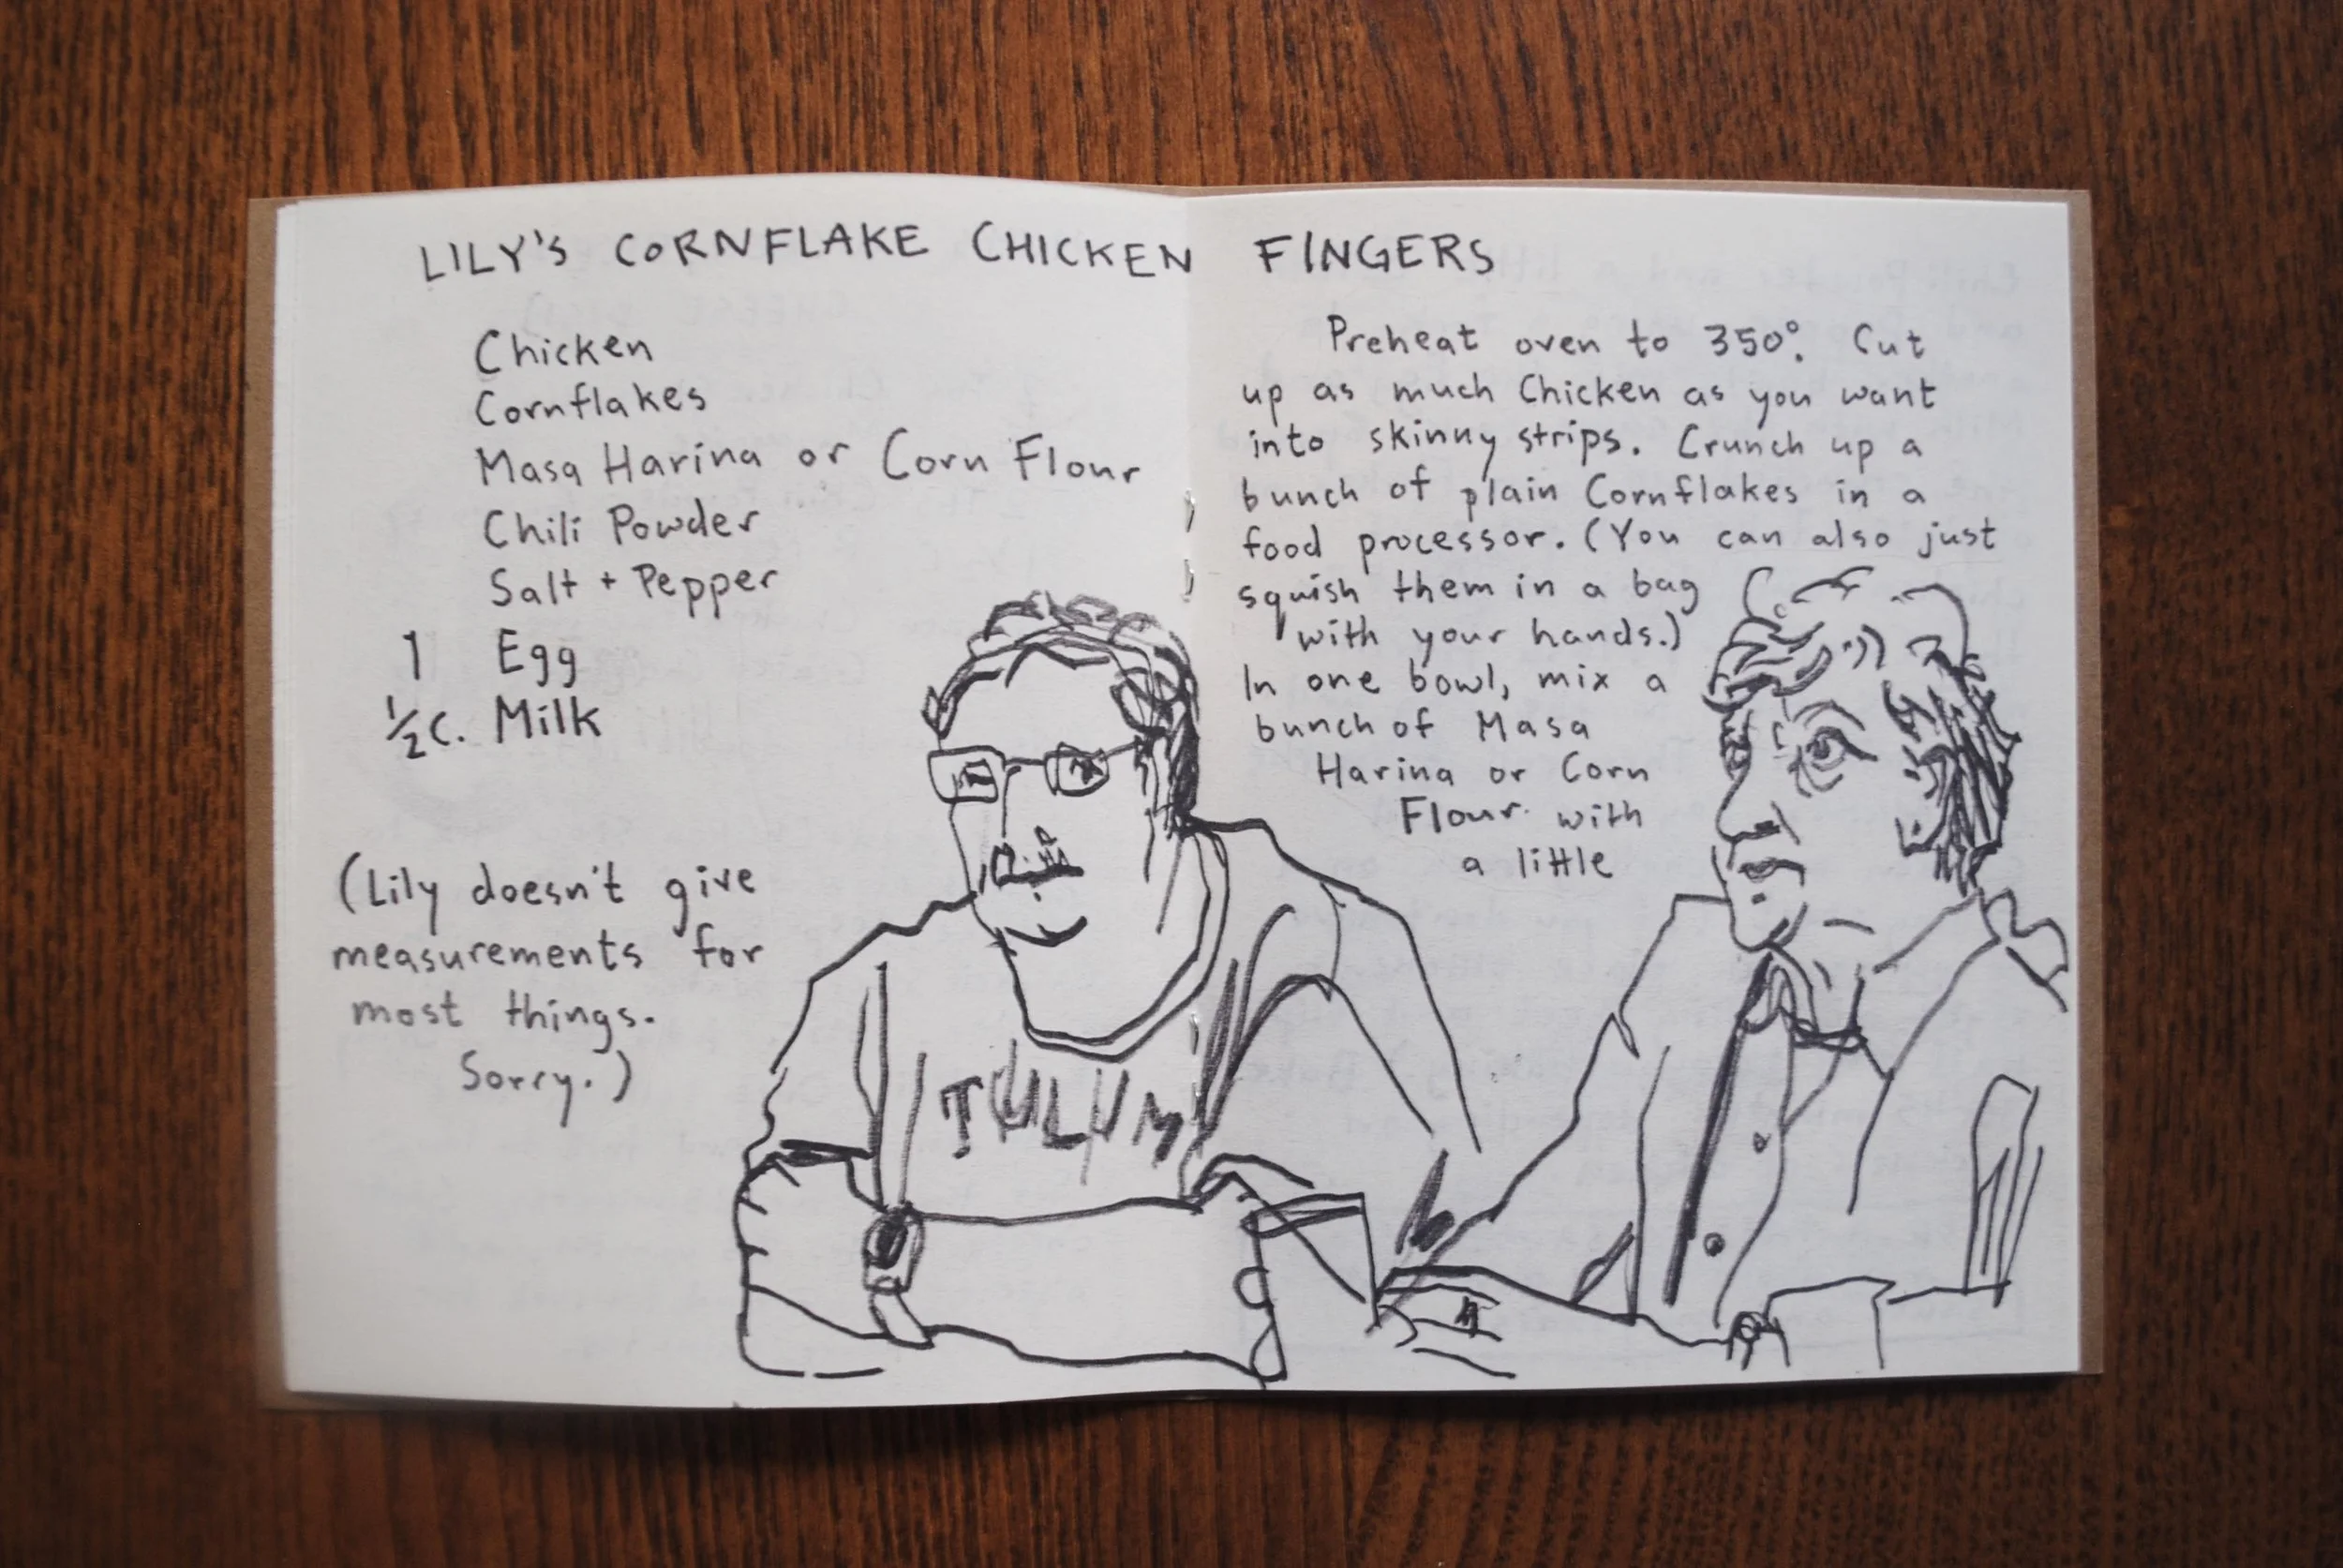 LILY'S CORNFLAKE CHICKEN FINGERS
Chicken
Cornflakes
Masa Harina or Corn Flour
Chili Powder
Salt + Pepper
1 Egg
1/2 c. Milk
(Lily doesn't give
measurements for
most things.
Sorry.)
Preheat oven to 350°. Cut
up as much Chicken as you want
into skinny strips. Crunch up a
bunch of plain Cornflakes in a
food processor. (You can also just
squish them in a bag
with your hands.)
In one bowl, mix a
bunch of Masa
Harina or Corn
Flour with
a little
TULUM